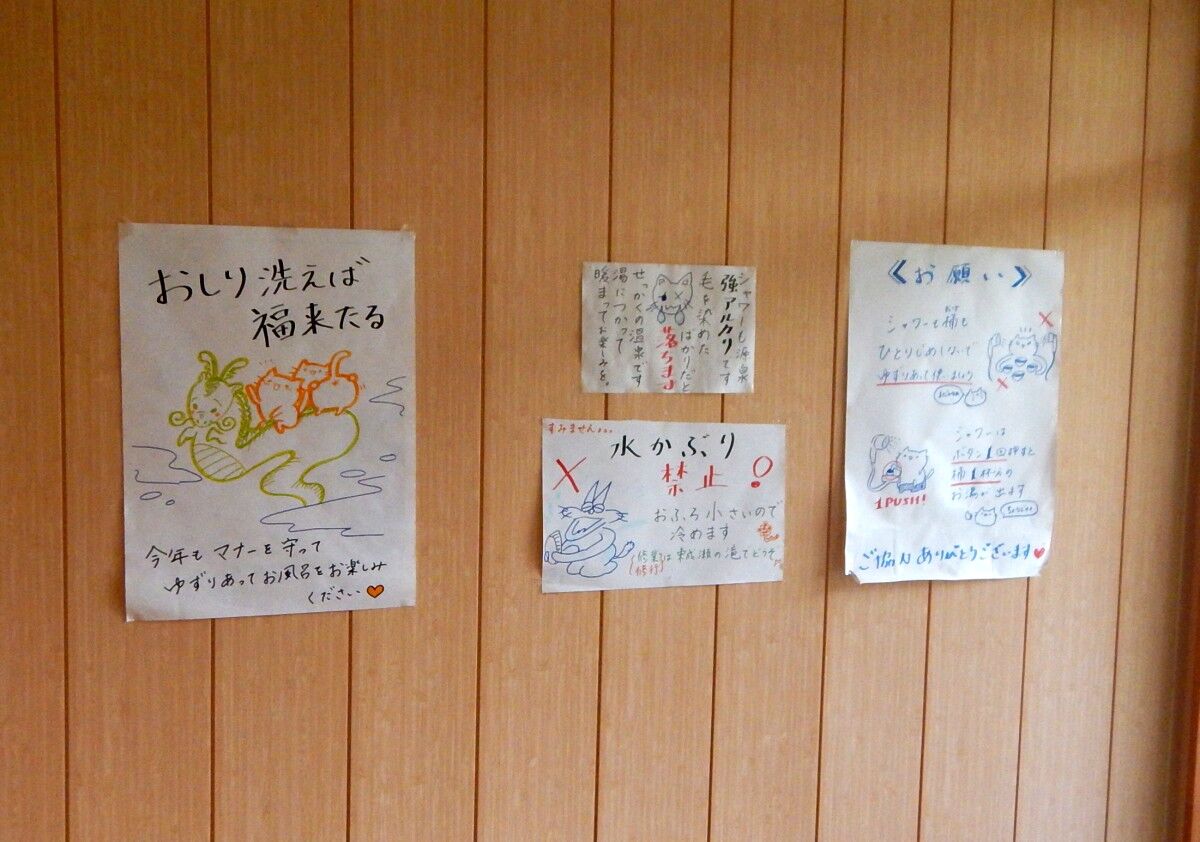 おしり洗えば
福来たる
今年もマナーを守って
ゆずりあってお風呂をお楽しみ
ください
シャワーも源泉
強アルカリです
毛を染めた
ばかりだと
落ちます
せっかくの温泉です
湯につかって
暖まってお楽しみを。
すみません...
水かぶり
禁止!
おふろ小さいので
冷めます
(修業は 東成瀬の滝でどうぞ
(修行)
《お願い》
シャワーも桶も
おけ
ひとりじめしないで
ゆずりあって使いましょう
シャワーは
ボタン1回押すと
桶1杯分の
お湯が出ます
1PUSH!
ご協力ありがとうございます